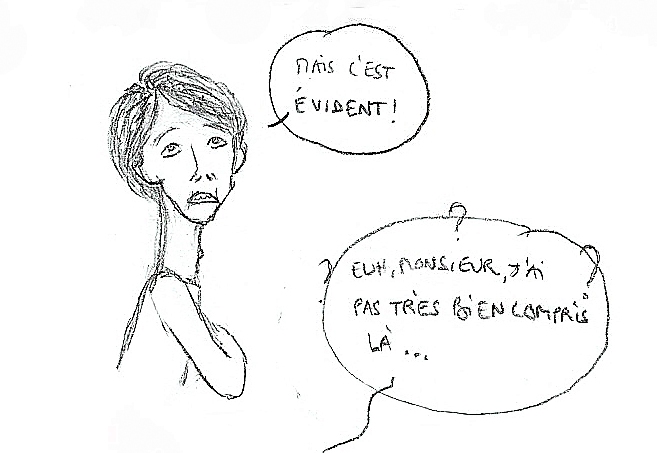 MAIS C'EST
ÉVIDENT!
?
?
?
EUH, MONSIEUR, J'AI
PAS TRÈS BIEN COMPRIS
LÀ ...